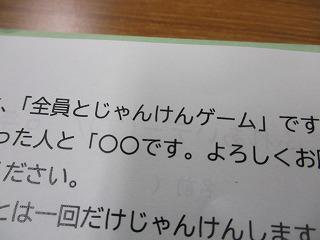 、「全員とじゃんけんゲーム」です
った人と「〇〇です。よろしくお
ください。
とは一回だけじゃんけんします